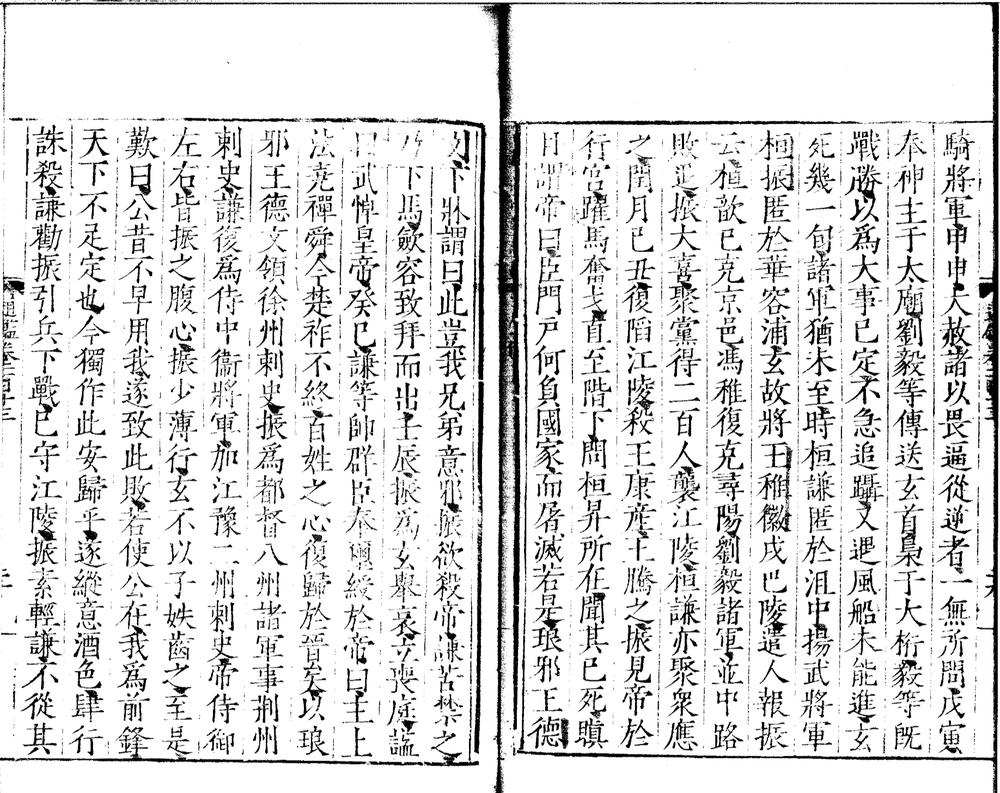 騎將軍甲申大赦諸以畏逼從逆者一無所問戊寅
奉神主于太廟劉毅等傳送玄首梟于大桁毅等既
戰勝以爲大事已定不急追躡又遇風船未能進玄
死幾一旬諸軍猶未至時桓謙匿於沮中揚武將軍
桓振匿於華容浦玄故將王稚徽戍巴陵遣人報振
云桓歆已克京邑馮稚復克尋陽劉毅諸軍並中路
敗退振大喜聚黨得二百人襲江陵桓謙亦聚衆應
之閏月己丑復陷江陵殺王康産王騰之振見帝於
行宮躍馬奮戈直至階下問桓昇所在聞其已死瞋
目謂帝曰臣門戶何負國家而屠滅若是琅邪王德
文下牀謂曰此豈我兄弟意邪振欲殺帝謙苦禁之
乃下馬斂容致拜而出壬辰振爲玄舉哀立喪庭諡
曰武悼皇帝癸巳謙等帥群臣奉璽綬於帝曰主上
法堯禪舜今楚祚不終百姓之心復歸於晉矣以琅
邪王德文領徐州刺史振爲都督八州諸軍事荆州
刺史謙復爲侍中衞將軍加江豫二州刺史帝侍御
左右皆振之腹心振少薄行玄不以子姪齒之至是
歎曰公昔不早用我遂致此敗若使公在我爲前鋒
天下不足定也今獨作此安歸乎遂縱意酒色肆行
誅殺謙勸振引兵下戰己守江陵振素輕謙不從其
通鑑卷一百十三